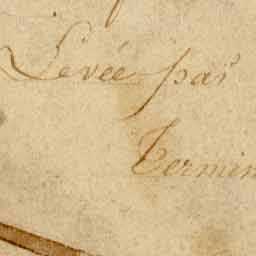 Levée par
Termin